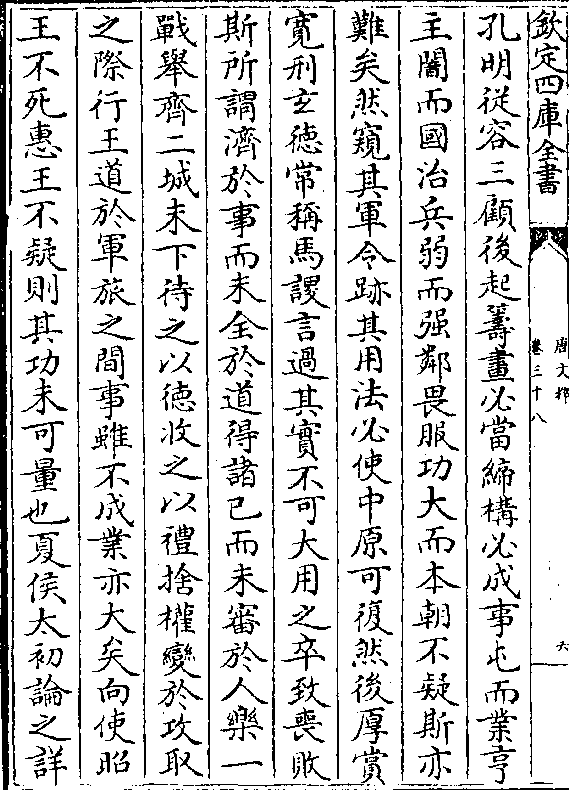 欽定四庫全書
唐文粹
卷三十八
六
孔明從容三顧後起籌畫必當締構必成事屯而業亨
主闇而國治兵弱而强鄰畏服功大而本朝不疑斯亦
難矣然窺其軍令跡其用法必使中原可復然後厚賞
寛刑玄德常稱馬謖言過其實不可大用之卒致喪敗
斯所謂濟於事而未全於道得諸已而未審於人樂一
戰舉齊二城未下待之以德收之以禮捨權變於攻取
之際行王道於軍旅之間事雖不成業亦大矣向使昭
王不死惠王不疑則其功未可量也夏侯太初論之詳